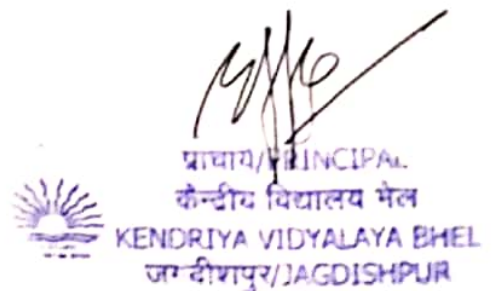 प्राचार्य/PRINCIPAL
केन्द्रीय विद्यालय भेल
KENDRIYA VIDYALAYA BHEL
जगदीशपुर/JAGDISHPUR